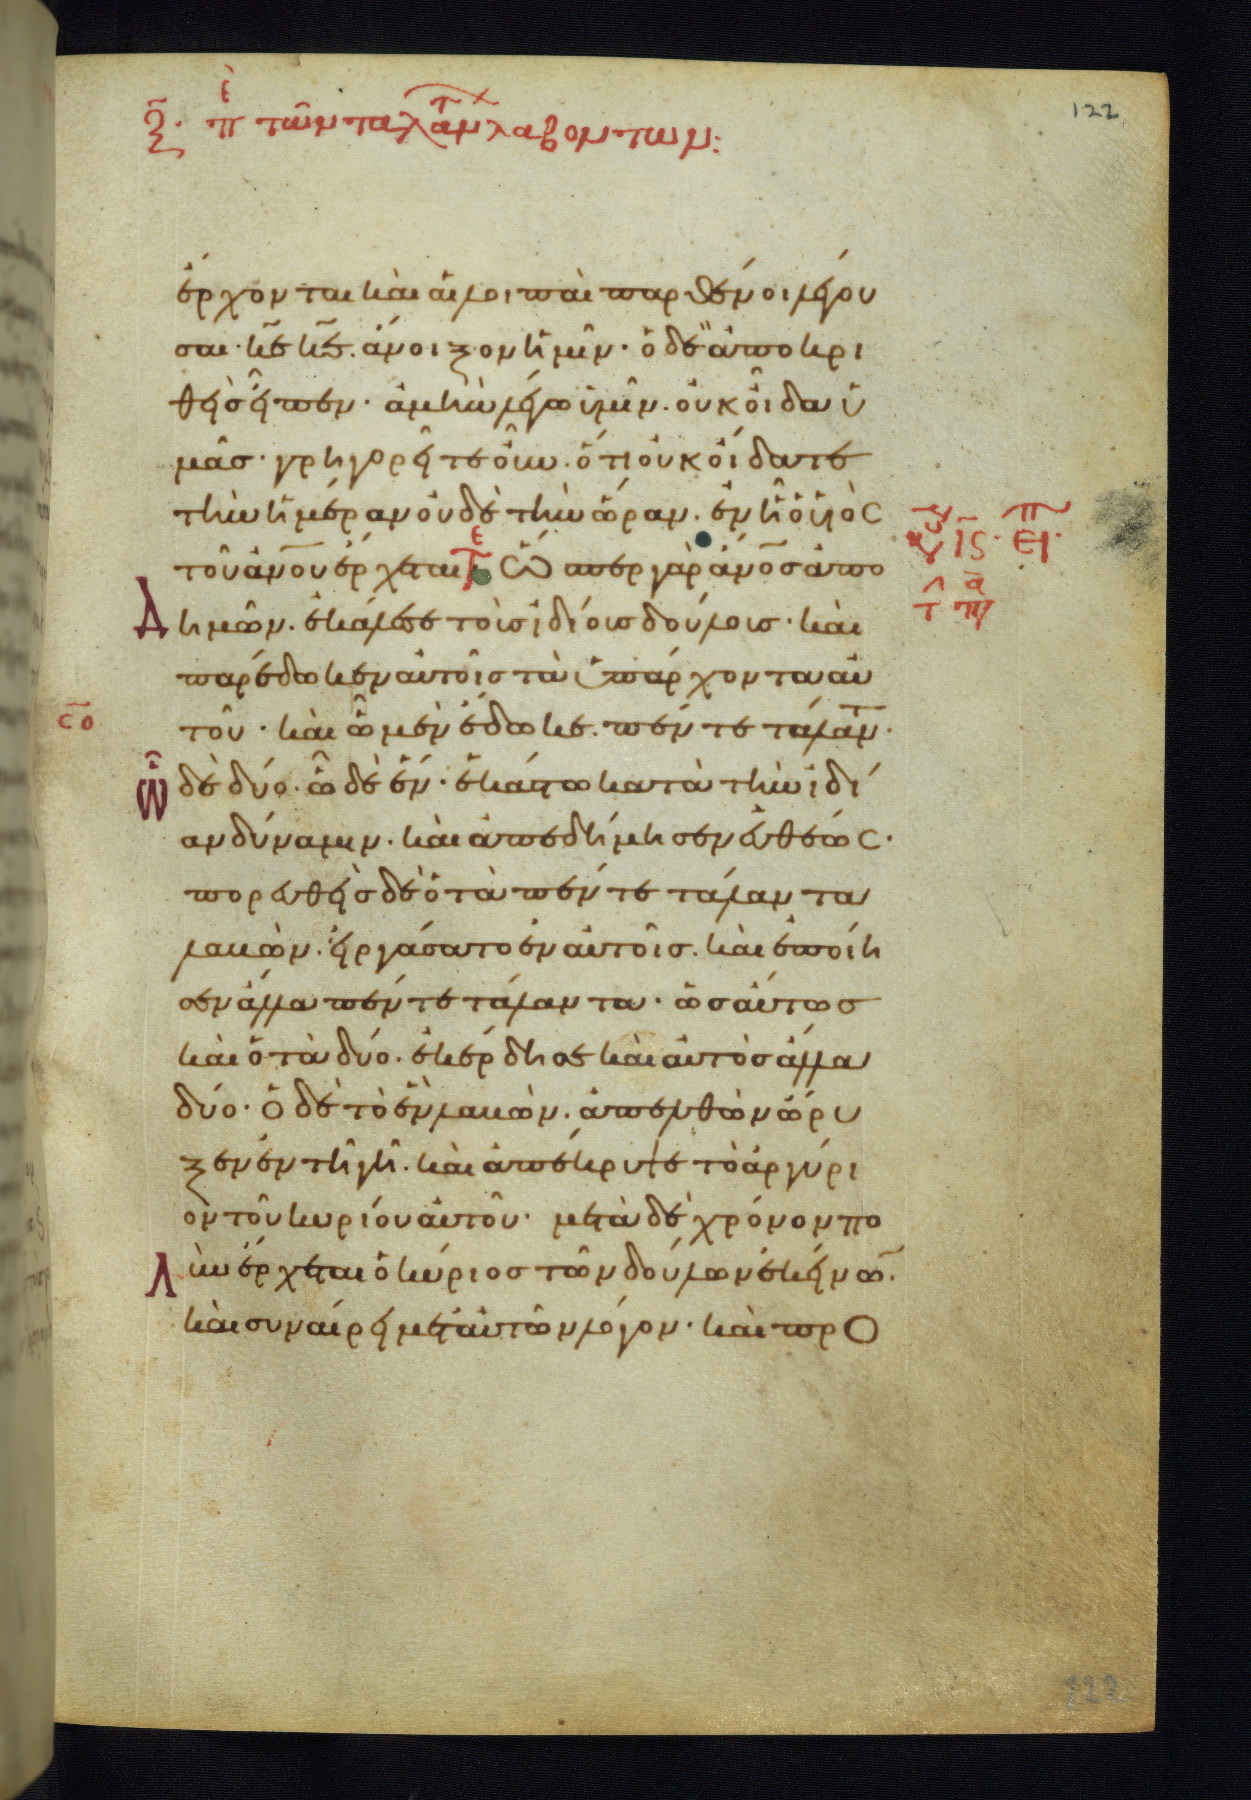 122
ξ̄· πε τῶν ταλάν̅τ λαβόντων:
ἔρχονται καὶ αἱ λοιπαὶ παρθένοι λέγου
σαι· κ̅ε κ̅ε. ἄνοιξον ἡμῖν· ὁ δὲ ἀποκρι
θεὶς εἶπεν· ἀμὴν λέγω ὑμῖν. οὐκ οἶδα ὑ
μᾶς· γρηγορεῖτε οὖν. ὅτι οὐκ οἴδατε
τὴν ἡμέραν οὐδὲ τὴν ὥραν. ἐν ᾗ ὁ υἱὸς
τοῦ ἀν̅ου ἔρχεται τε Ὥσπερ γὰρ ἀν̅ος ἀπο
Δημῶν. ἐκάλεσε τοῖς ἰδίοις δούλοις· καὶ
παρέδωκεν αὐτοῖς τὰ ὑπάρχοντα αὐ
τοῦ· καὶ ᾧ μὲν ἔδωκε. πέντε τάλαν̅τ·
σ̅ο
Ὧ δὲ δύο. ᾧ δὲ ἕν· ἑκάστω κατὰ τὴν ἰδί
αν δύναμιν. καὶ ἀπεδήμησεν εὐθέως·
πορευθεὶς δὲ ὁ τὰ πέντε τάλαντα
λαβὼν. εἰργάσατο ἐν αὐτοῖς. καὶ ἐποίη
σεν ἄλλα πέντε τάλαντα· ὡσαύτως
καὶ ὁ τὰ δύο. ἐκέρδησε καὶ αὐτὸς ἄλλα
δύο· ὁ δὲ τὸ ἓν λαβὼν. ἀπελθὼν ὤρυ
ξεν ἐν τῆ γῆ. καὶ ἀπέκρυψε τὸ ἀργύρι
ον τοῦ κυρίου αὐτοῦ· μετὰ δὲ χρόνον πο
Λὺν ἔρχεται ὁ κύριος τῶν δούλων ἐκείνω̅.
καὶ συναίρει μετ' αὐτῶν λόγον· καὶ προ
122